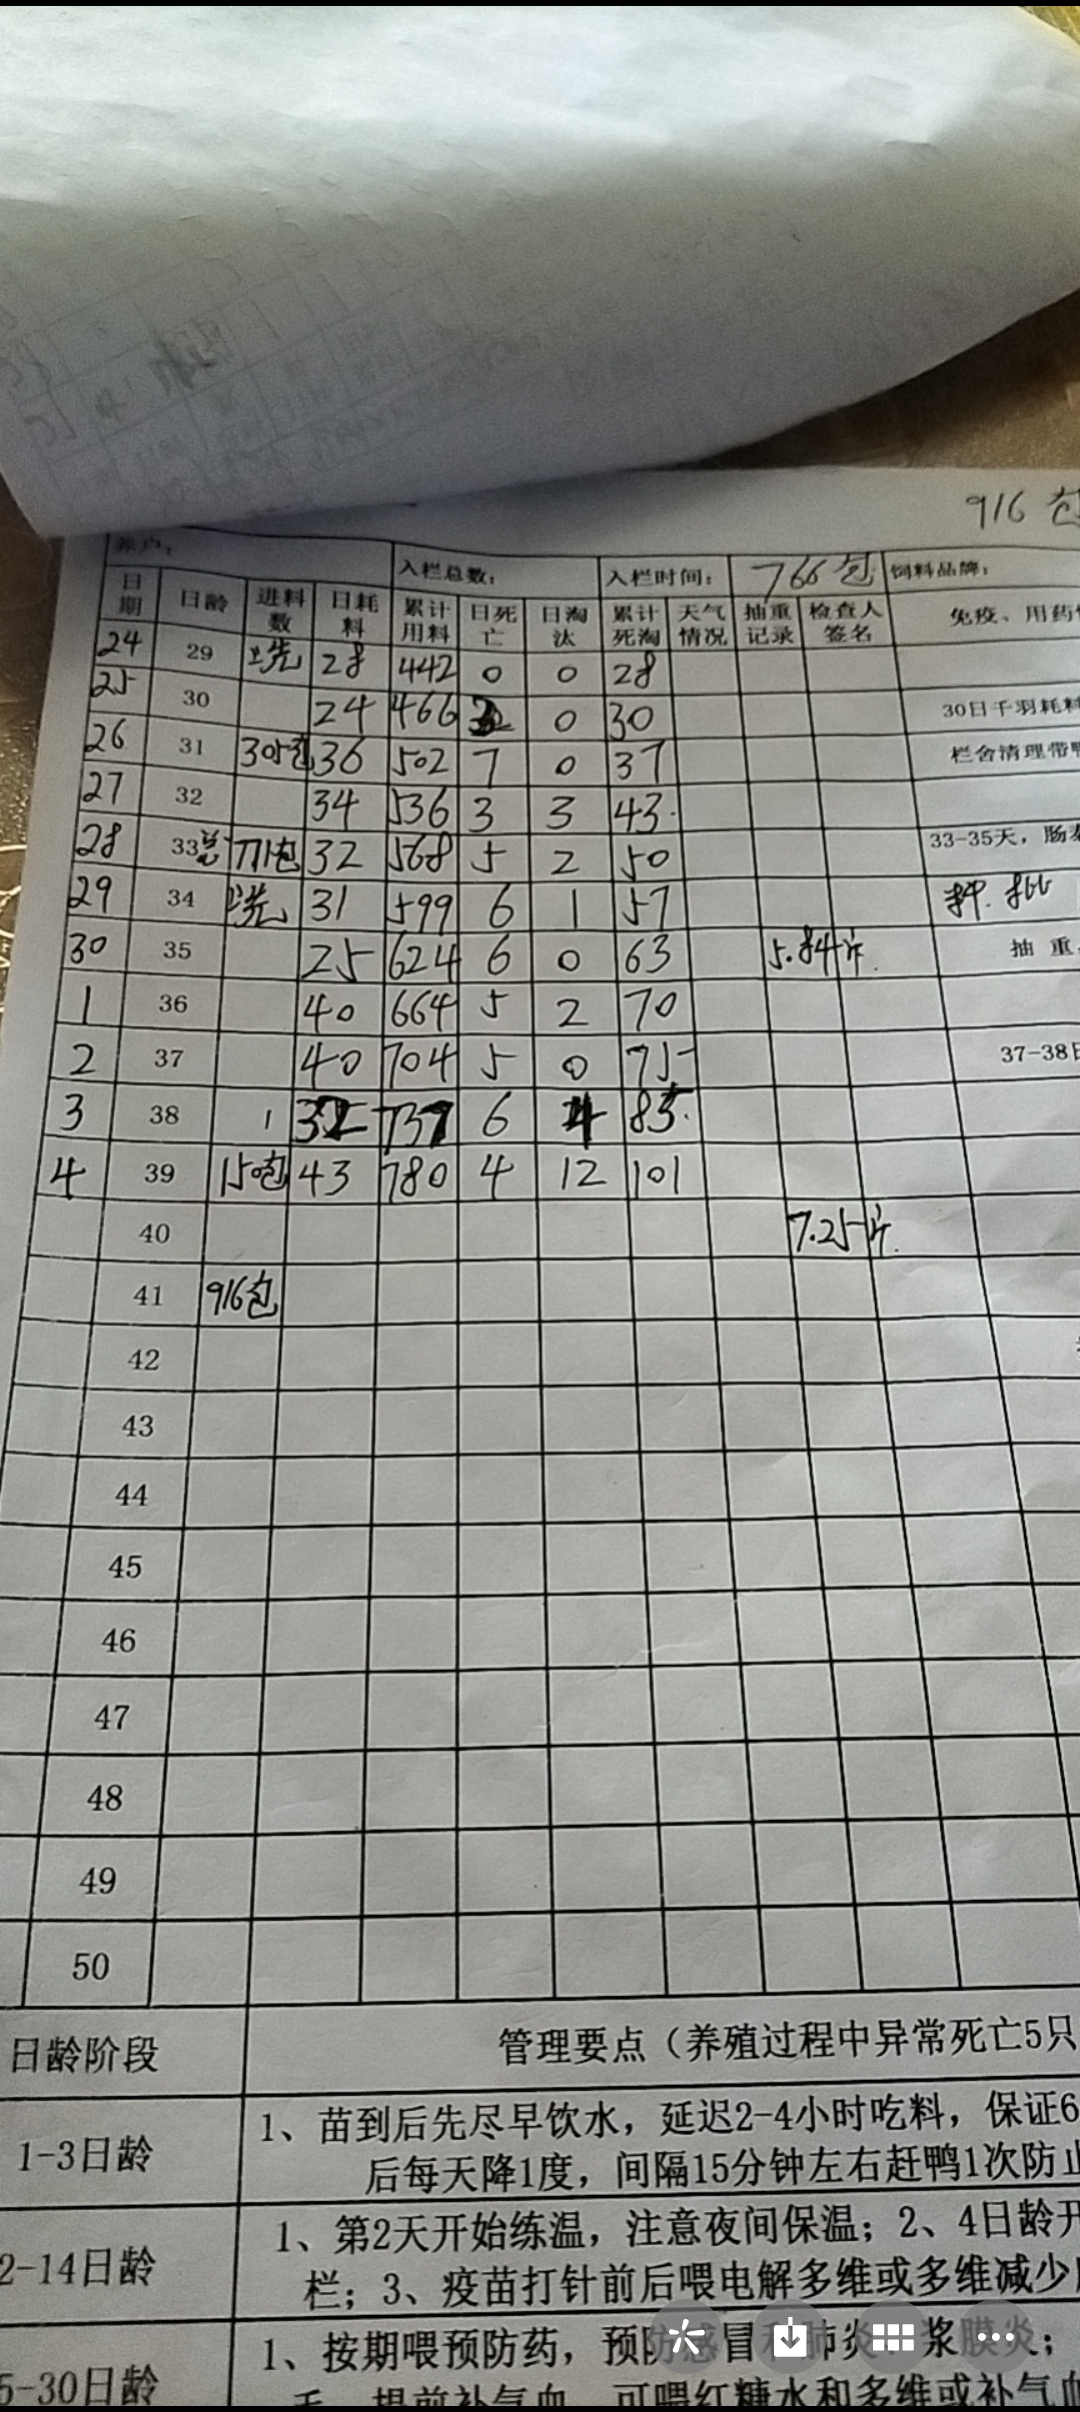 916包
养户： 入栏总数： 入栏时间： 766包 饲料品牌：
日期 日龄 进料数 日耗料 累计用料 日死亡 日淘汰 累计死淘 天气情况 抽重记录 检查人签名 免疫、用药
24 29 28 442 0 0 28
25 30 24 466 2 0 30 30日千羽耗料
26 31 305包 36 502 7 0 37 栏舍清理带
27 32 34 536 3 3 43
28 33 32 568 5 2 50 33-35天，肠
29 34 31 599 6 1 57
30 35 25 624 6 0 63 5.84斤 抽重
1 36 40 664 5 2 70
2 37 40 704 5 0 75 37-38日
3 38 737 6 4 85
4 39 150包 43 780 4 12 101
40 7.25斤
41 916包
42
43
44
45
46
47
48
49
50
日龄阶段 管理要点（养殖过程中异常死亡5只
1-3日龄 1、苗到后先尽早饮水，延迟2-4小时吃料，保证6
后每天降1度，间隔15分钟左右赶鸭1次防止
2-14日龄 1、第2天开始练温，注意夜间保温；2、4日龄开
栏；3、疫苗打针前后喂电解多维或多维减少
5-30日龄 1、按期喂预防药，预防感冒和肺炎、浆膜炎；
提前补气血，可喂红糖水和多维或补气血